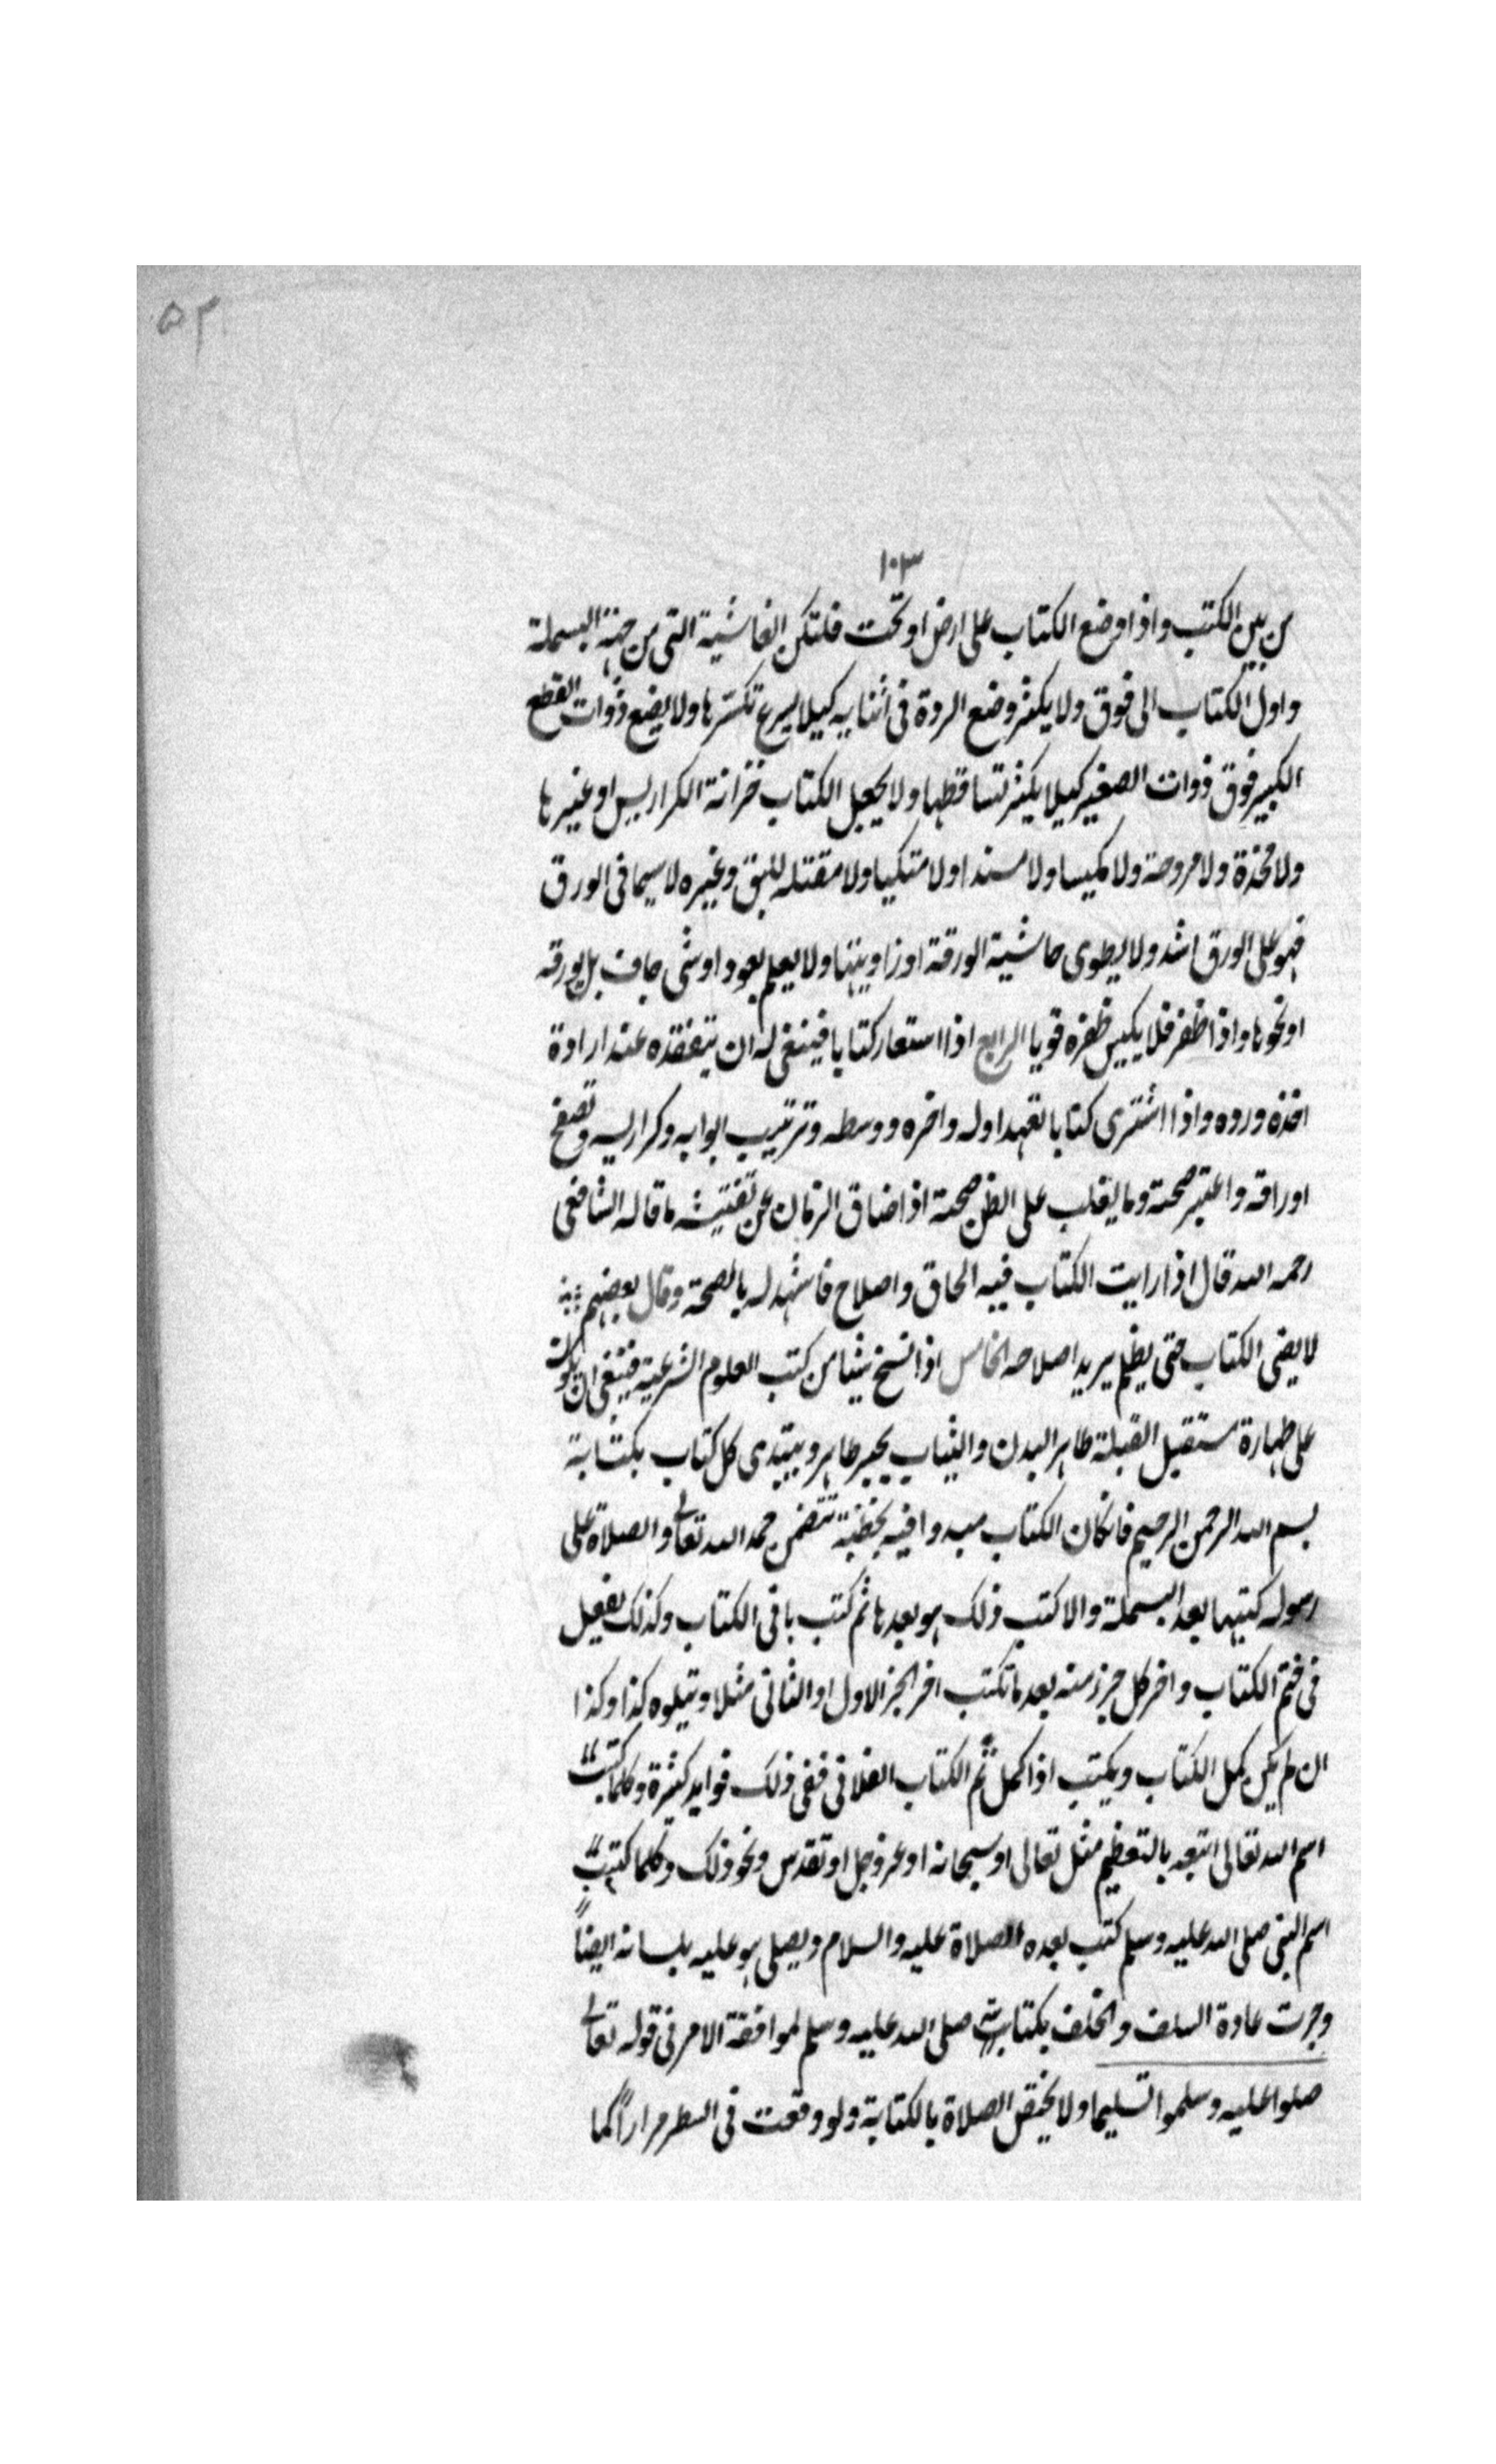 ٥٢
١٠٣
من بين الكتب واذا وضع الكتاب على ارض او تحت فلتكن الغاشية التى من جهة البسملة
واول الكتاب الى فوق ولا يكثر وضع الردة فى اثنايه كيلا يسرع تكسرها ولا يضع ذوات القطع
الكبير فوق ذوات الصغير كيلا يكثر تساقطها ولا يجعل الكتاب خزانة الكراريس او غيرها
ولا مخدة ولا مروحة ولا كميسا ولا مسندا ولا متكيا ولا مقتله للبق وغيره لا سيما فى الورق
فهو على الورق اشد ولا يطوى حاشية الورقة او زاويتها ولا يعلم بعود او شى جاف بل بورقه
او نحوها واذا ظفر فلا يكبس ظفره قويا الرابع اذا استعار كتابا فينبغى له ان يتفقده عند ارادة
اخذه ورده واذا اشترى كتابا تعهد اوله واخره ووسطه وترتيب ابوابه وكراريسه وتصفح
اوراقه واعتبر صحته وما يغلب على الظن صحته اذا ضاق الزمان عن تفتيشه ما قاله الشافعى
رحمه الله قال اذا رايت الكتاب فيه الحاق واصلاح فاشهد له بالصحة وقال بعضهم
لا يضى الكتاب حتى يظلم يريد اصلاحه الخامس اذا نسخ شيئا من كتب العلوم الشرعية فينبغى ان يكون
على طهارة مستقبل القبلة طاهر البدن والثياب بحبر طاهر ويبتدى كل كتاب بكتابة
بسم الله الرحمن الرحيم فانكان الكتاب مبدوا فيه بخطبة تتضمن حمد الله تعالى والصلاة على
رسوله كتبها بعد البسملة والا كتب ذلك هو بعدها ثم كتب باقى الكتاب وكذلك يفعل
فى ختم الكتاب واخر كل جزء منه بعد ما تكتب اخر الجز الاول او الثانى مثلا ويتلوه كذا وكذا
ان لم يكن كمل الكتاب ويكتب اذا كمل تم الكتاب الفلانى ففى ذلك فوايد كثيرة وكلما كتبت
اسم الله تعالى اتبعه بالتعظيم مثل تعالى او سبحانه او عز وجل او تقدس ونحو ذلك وكلما كتبت
اسم النبى صلى الله عليه وسلم كتب بعده الصلاة عليه والسلام ويصلى هو عليه بلسانه ايضاً
وجرت عادة السلف والخلف بكتابة صلى الله عليه وسلم لموافقة الامر فى قوله تعالى
صلوا عليه وسلموا تسليما ولا يختصر الصلاة بالكتابة ولو وقعت فى السطر مراراً كما